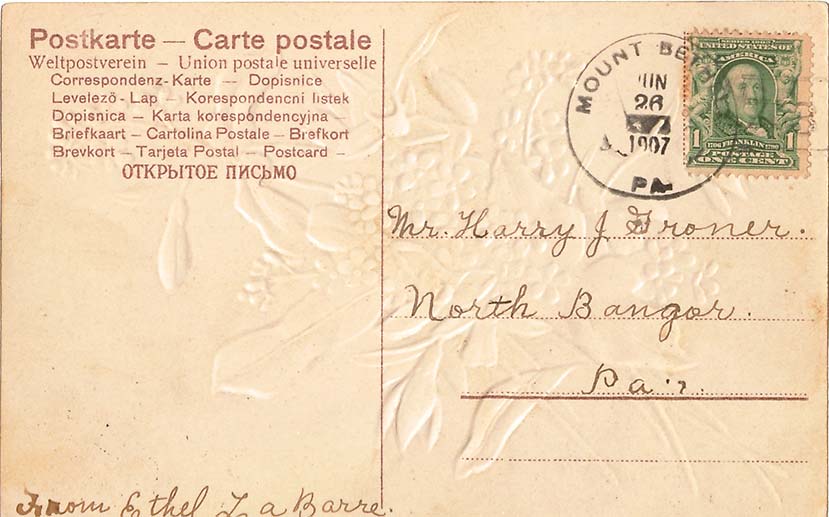 Postkarte — Carte postale
Weltpostverein — Union postale universelle
Correspondenz-Karte — Dopisnice
Levelező-Lap — Korespondencni listek
Dopisnica — Karta korespondencyjna —
Briefkaart — Cartolina Postale — Brefkort
Brevkort — Tarjeta Postal — Postcard —
ОТКРЫТОЕ ПИСЬМО
MOUNT
JUN
26
1907
PA
SERIES 1902
UNITED STATES OF
AMERICA
1 1706 FRANKLIN 1790 1
POSTAGE
ONE CENT
Mr. Harry J Groner.
North Bangor.
Pa
From Ethel La Barre.